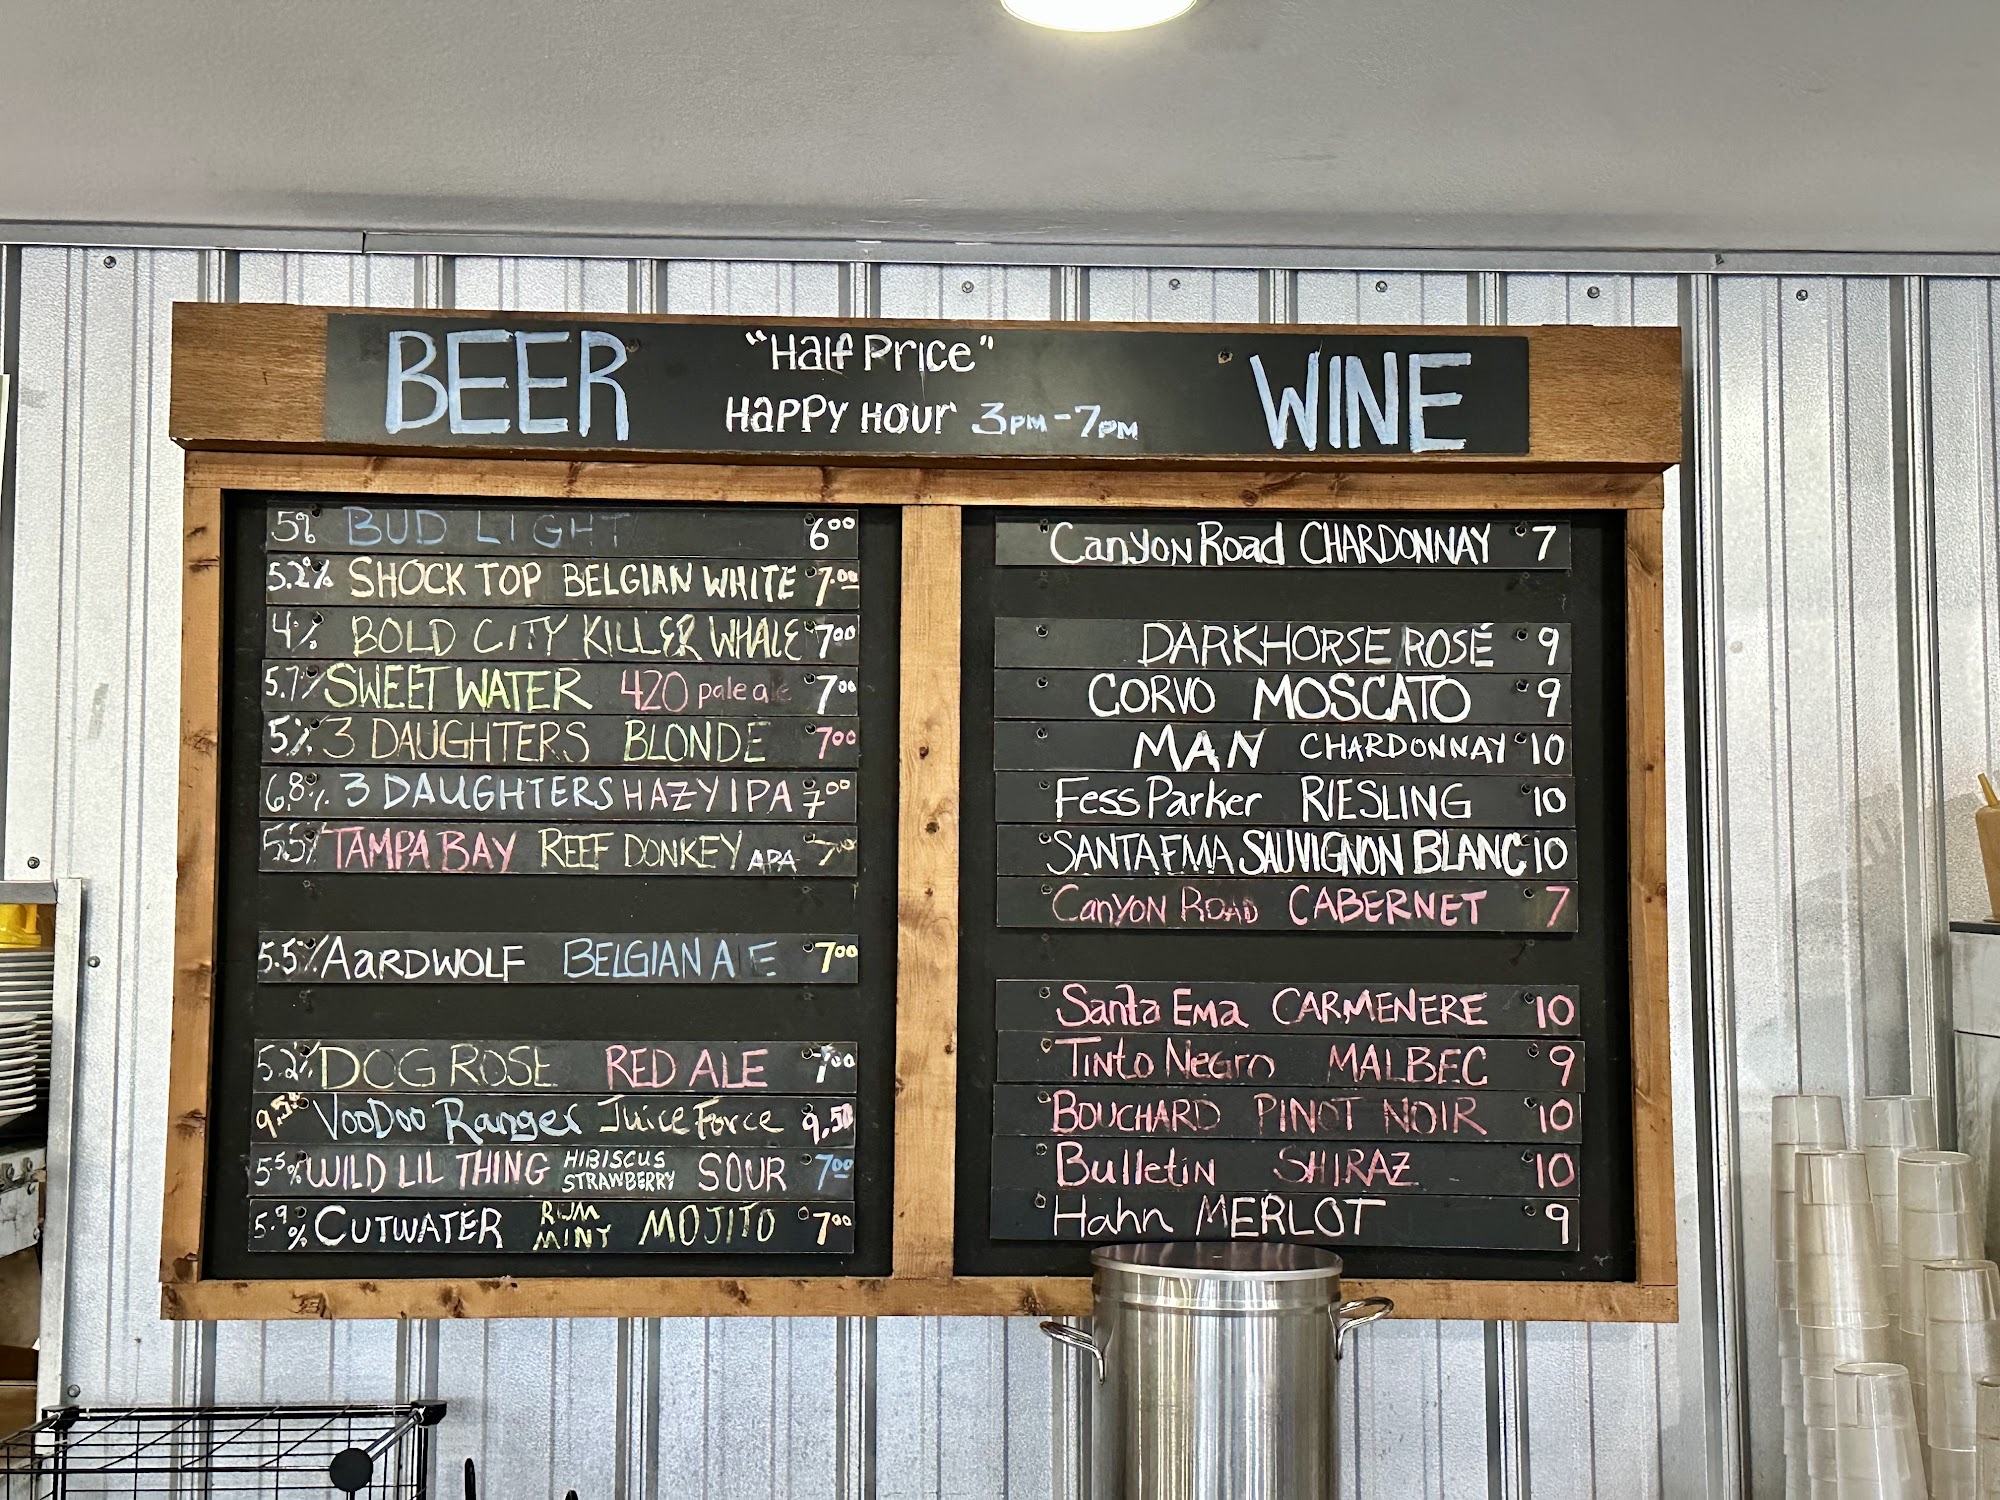 BEER
"Half Price"
Happy Hour 3pm-7pm
WINE
5% BUD LIGHT 6.00
5.2% SHOCK TOP BELGIAN WHITE 7.00
4% BOLD CITY KILLER WHALE 7.00
5.7% SWEET WATER 420 pale ale 7.00
5% 3 DAUGHTERS BLONDE 7.00
6.8% 3 DAUGHTERS HAZY IPA 7.00
5.5% TAMPA BAY REEF DONKEY APA 7.00
5.5% AARDWOLF BELGIAN A E 7.00
5.2% DOG ROSE RED ALE 7.00
9.5% VooDoo Ranger Juice Force 9.50
5.5% WILD LIL THING HIBISCUS STRAWBERRY SOUR 7.00
5.9% CUTWATER RUM MINT MOJITO 7.00
Canyon Road CHARDONNAY 7
DARKHORSE ROSÉ 9
CORVO MOSCATO 9
MAN CHARDONNAY 10
Fess Parker RIESLING 10
SANTA EMA SAUVIGNON BLANC 10
Canyon Road CABERNET 7
Santa Ema CARMENERE 10
Tinto Negro MALBEC 9
BOUCHARD PINOT NOIR 10
Bulletin SHIRAZ 10
Hahn MERLOT 9